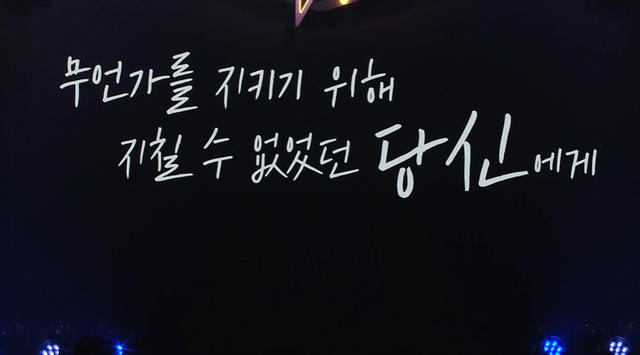 무언가를 지키기 위해
지칠 수 없었던 당신에게